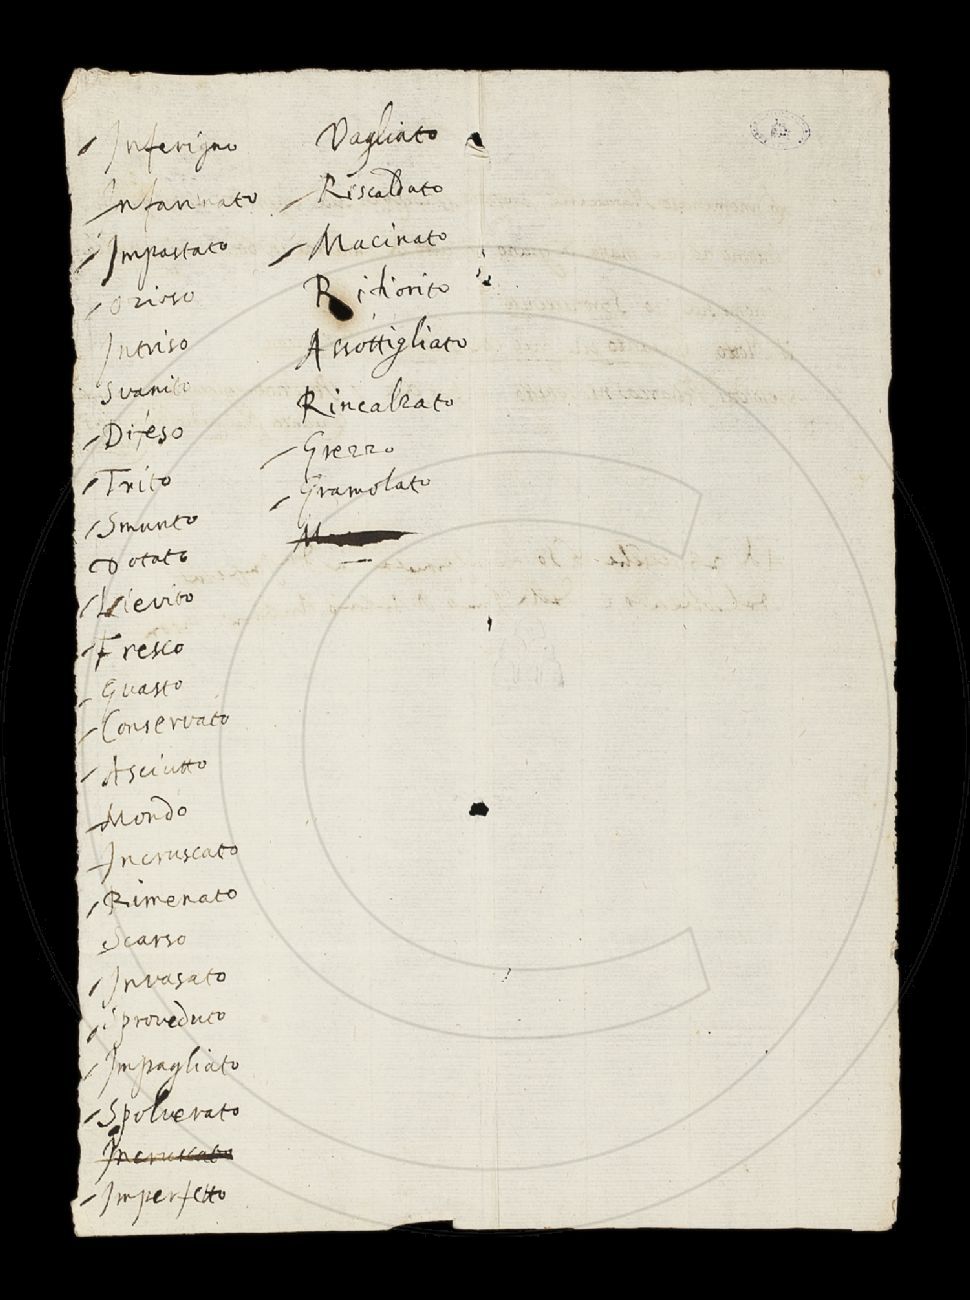 Inferigno
Infarinato
Impastato
Ozioso
Intriso
Svanito
Difeso
Trito
Smunto
Dotato
Lievito
Fresco
Guasto
Conservato
Asciutto
Mondo
Incruscato
Rimenato
Scarso
Invasato
Sproveduto
Impagliato
Spolverato
Incruscato
Imperfetto
Vagliato
Riscaldato
Macinato
Rifiorito
Assottigliato
Rincalzato
Grezzo
Gramolato